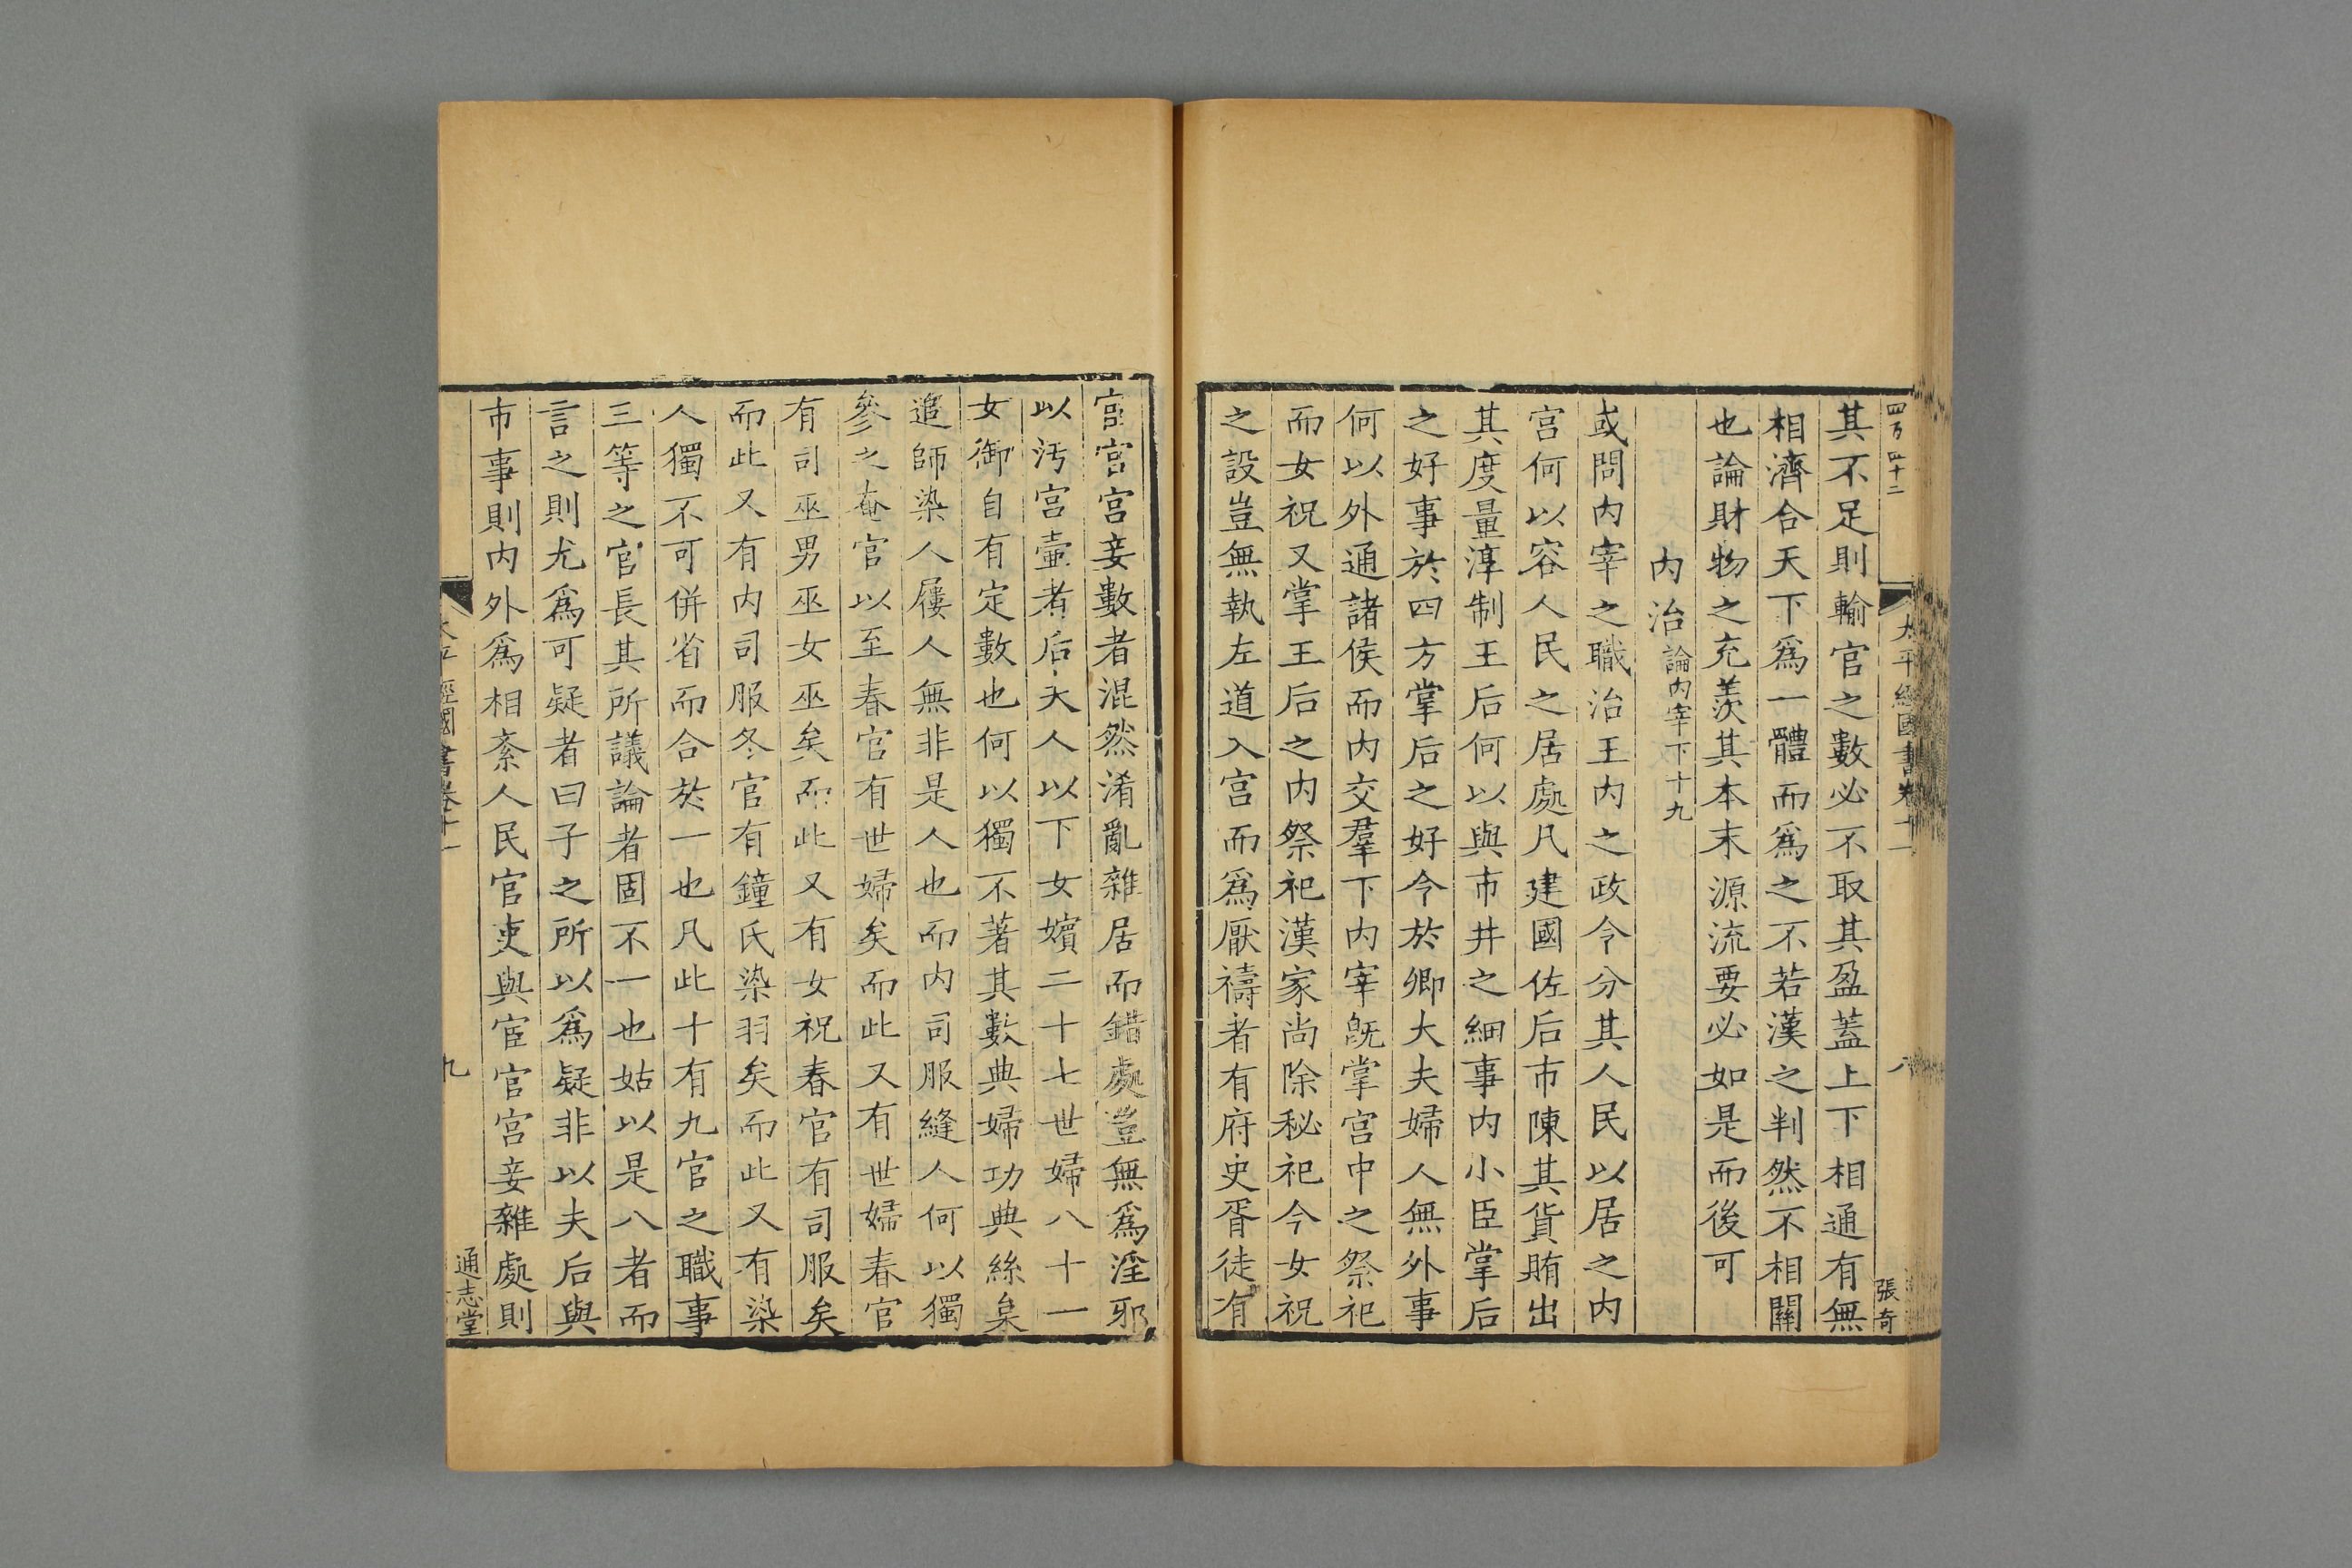 四万四十二
太平經國書卷十一
八
張奇
其不足則輸官之數必不取其盈蓋上下相通有無
相濟合天下爲一體而爲之不若漢之判然不相關
也論財物之充羨其本末源流要必如是而後可
内治論内宰下十九
或問内宰之職治王内之政令分其人民以居之内
宫何以容人民之居處凡建國佐后市陳其貨賄出
其度量淳制王后何以與市井之細事内小臣掌后
之好事於四方掌后之好令於卿大夫婦人無外事
何以外通諸侯而内交羣下内宰旣掌宫中之祭祀
而女祝又掌王后之内祭祀漢家尚除秘祀今女祝
之設豈無執左道入宫而爲厭禱者有府史胥徒有
宫宫宫妾數者混然淆亂雜居而錯處豈無爲淫邪
以汚宫壷者后夫人以下女嬪二十七世婦八十一
女御自有定數也何以獨不著其數典婦功典絲枲
追師染人屨人無非是人也而内司服縫人何以獨
參之奄官以至春官有世婦矣而此又有世婦春官
有司巫男巫女巫矣而此又有女祝春官有司服矣
而此又有内司服冬官有鐘氏染羽矣而此又有染
人獨不可併省而合於一也凡此十有九官之職事
三等之官長其所議論者固不一也姑以是八者而
言之則尤爲可疑者曰子之所以爲疑非以夫后與
市事則内外爲相紊人民官吏與宦官宫妾雜處則
太平經國書卷十一
九
通志堂